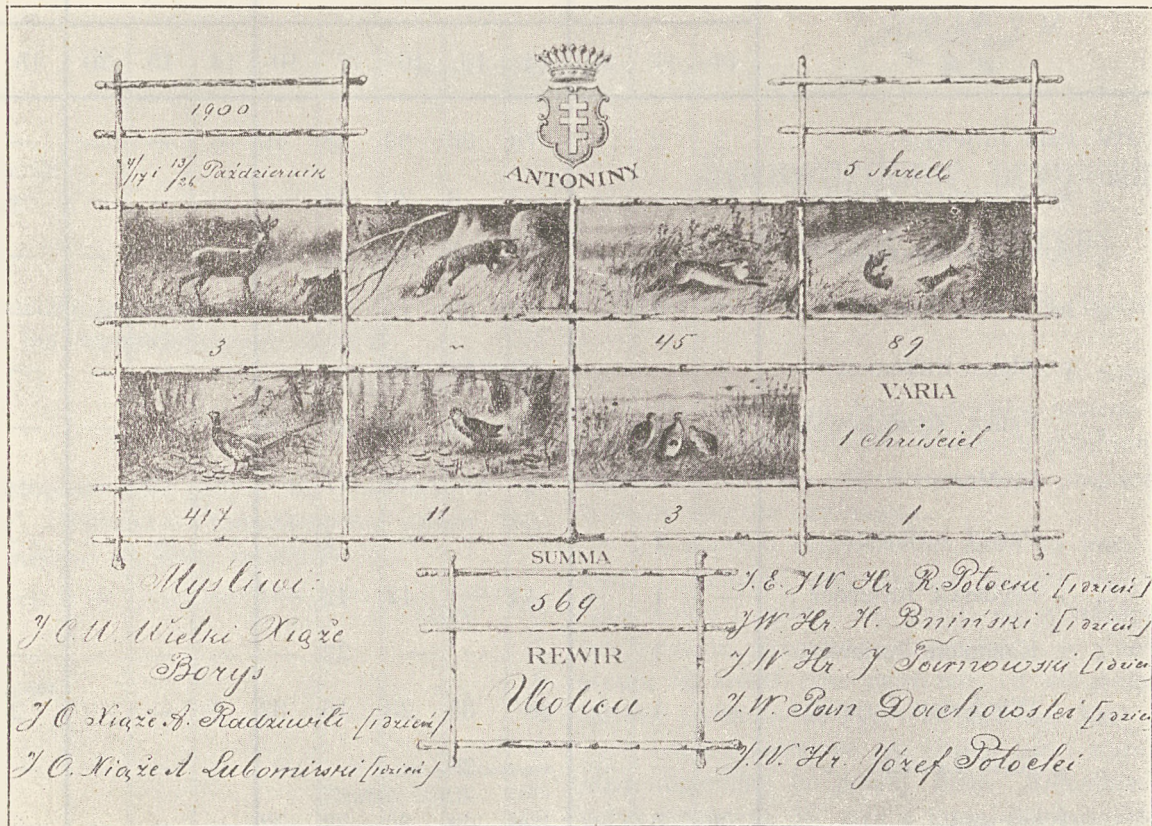 1900
4/17 i 13/26 Październik
ANTONINY
5 strzelb
3
-
45
89
VARIA
1 chruściel
417
11
3
1
SUMMA
569
REWIR
Myśliwi:
J C. W. Wielki Xiąże
Borys
J O. Xiąże A. Radziwiłł [1 dzień]
J O. Xiąże A. Lubomirski [1 dzień]
J. E. JW Hr R. Potocki [1 dzień]
JW. Hr. H. Bniński [1 dzień]
J. W Hr. J Tarnowski [1 dzień
J. W. Pan Dachowski [1 dzień
J. W. Hr. Józef Potocki